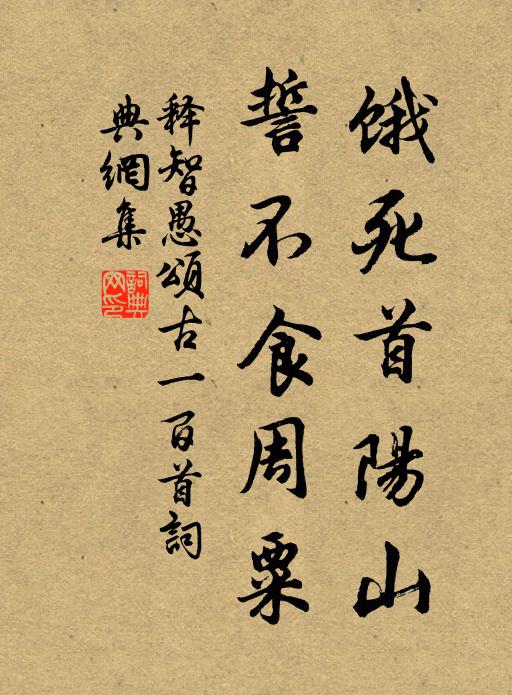 餓死首陽山
誓不食周粟
释智愚頌古一百首詞
典網集
詞典网印